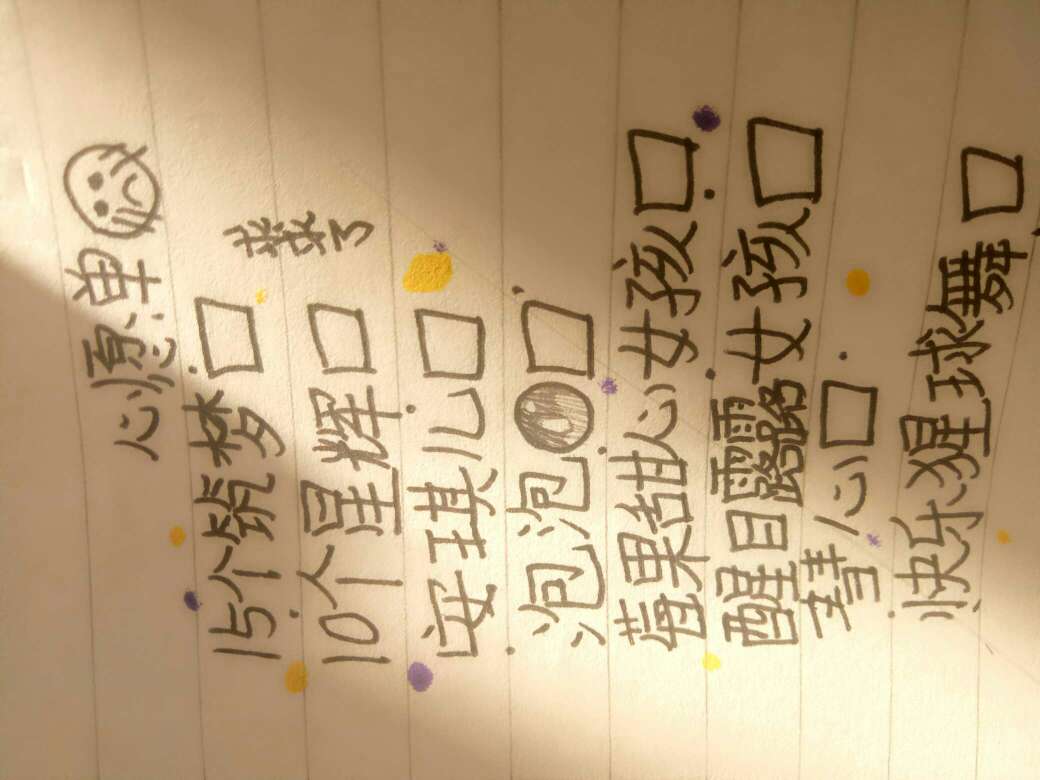 心愿单
15个筑梦□
求求了
10个星辉□
安琪儿□
泡泡□
莓果甜心女孩□
醒目露露女孩□
彗心□
快乐猩球舞□